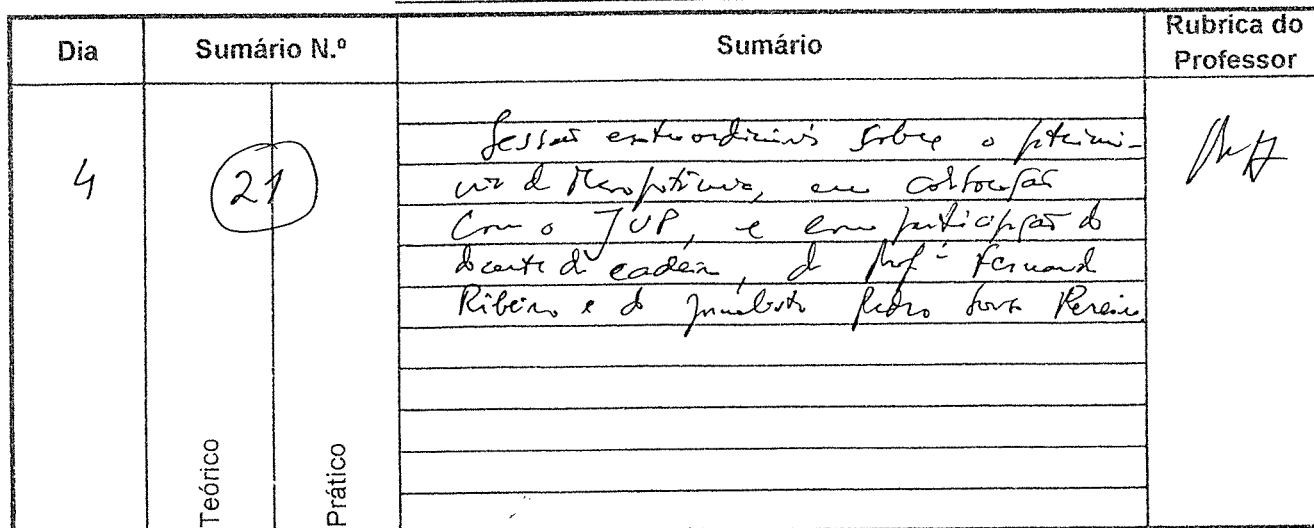 Dia
Sumário N.º
Sumário
Rubrica do
Professor
4
21
Sessão extraordinária sobre o patrimó-
nio da Mesopotâmia, em colaboração
com o JUP, e com participação do
docente da cadeira, da Prof.ª Fernanda
Ribeiro e do jornalista Pedro Sousa Pereira
Teórico
Prático